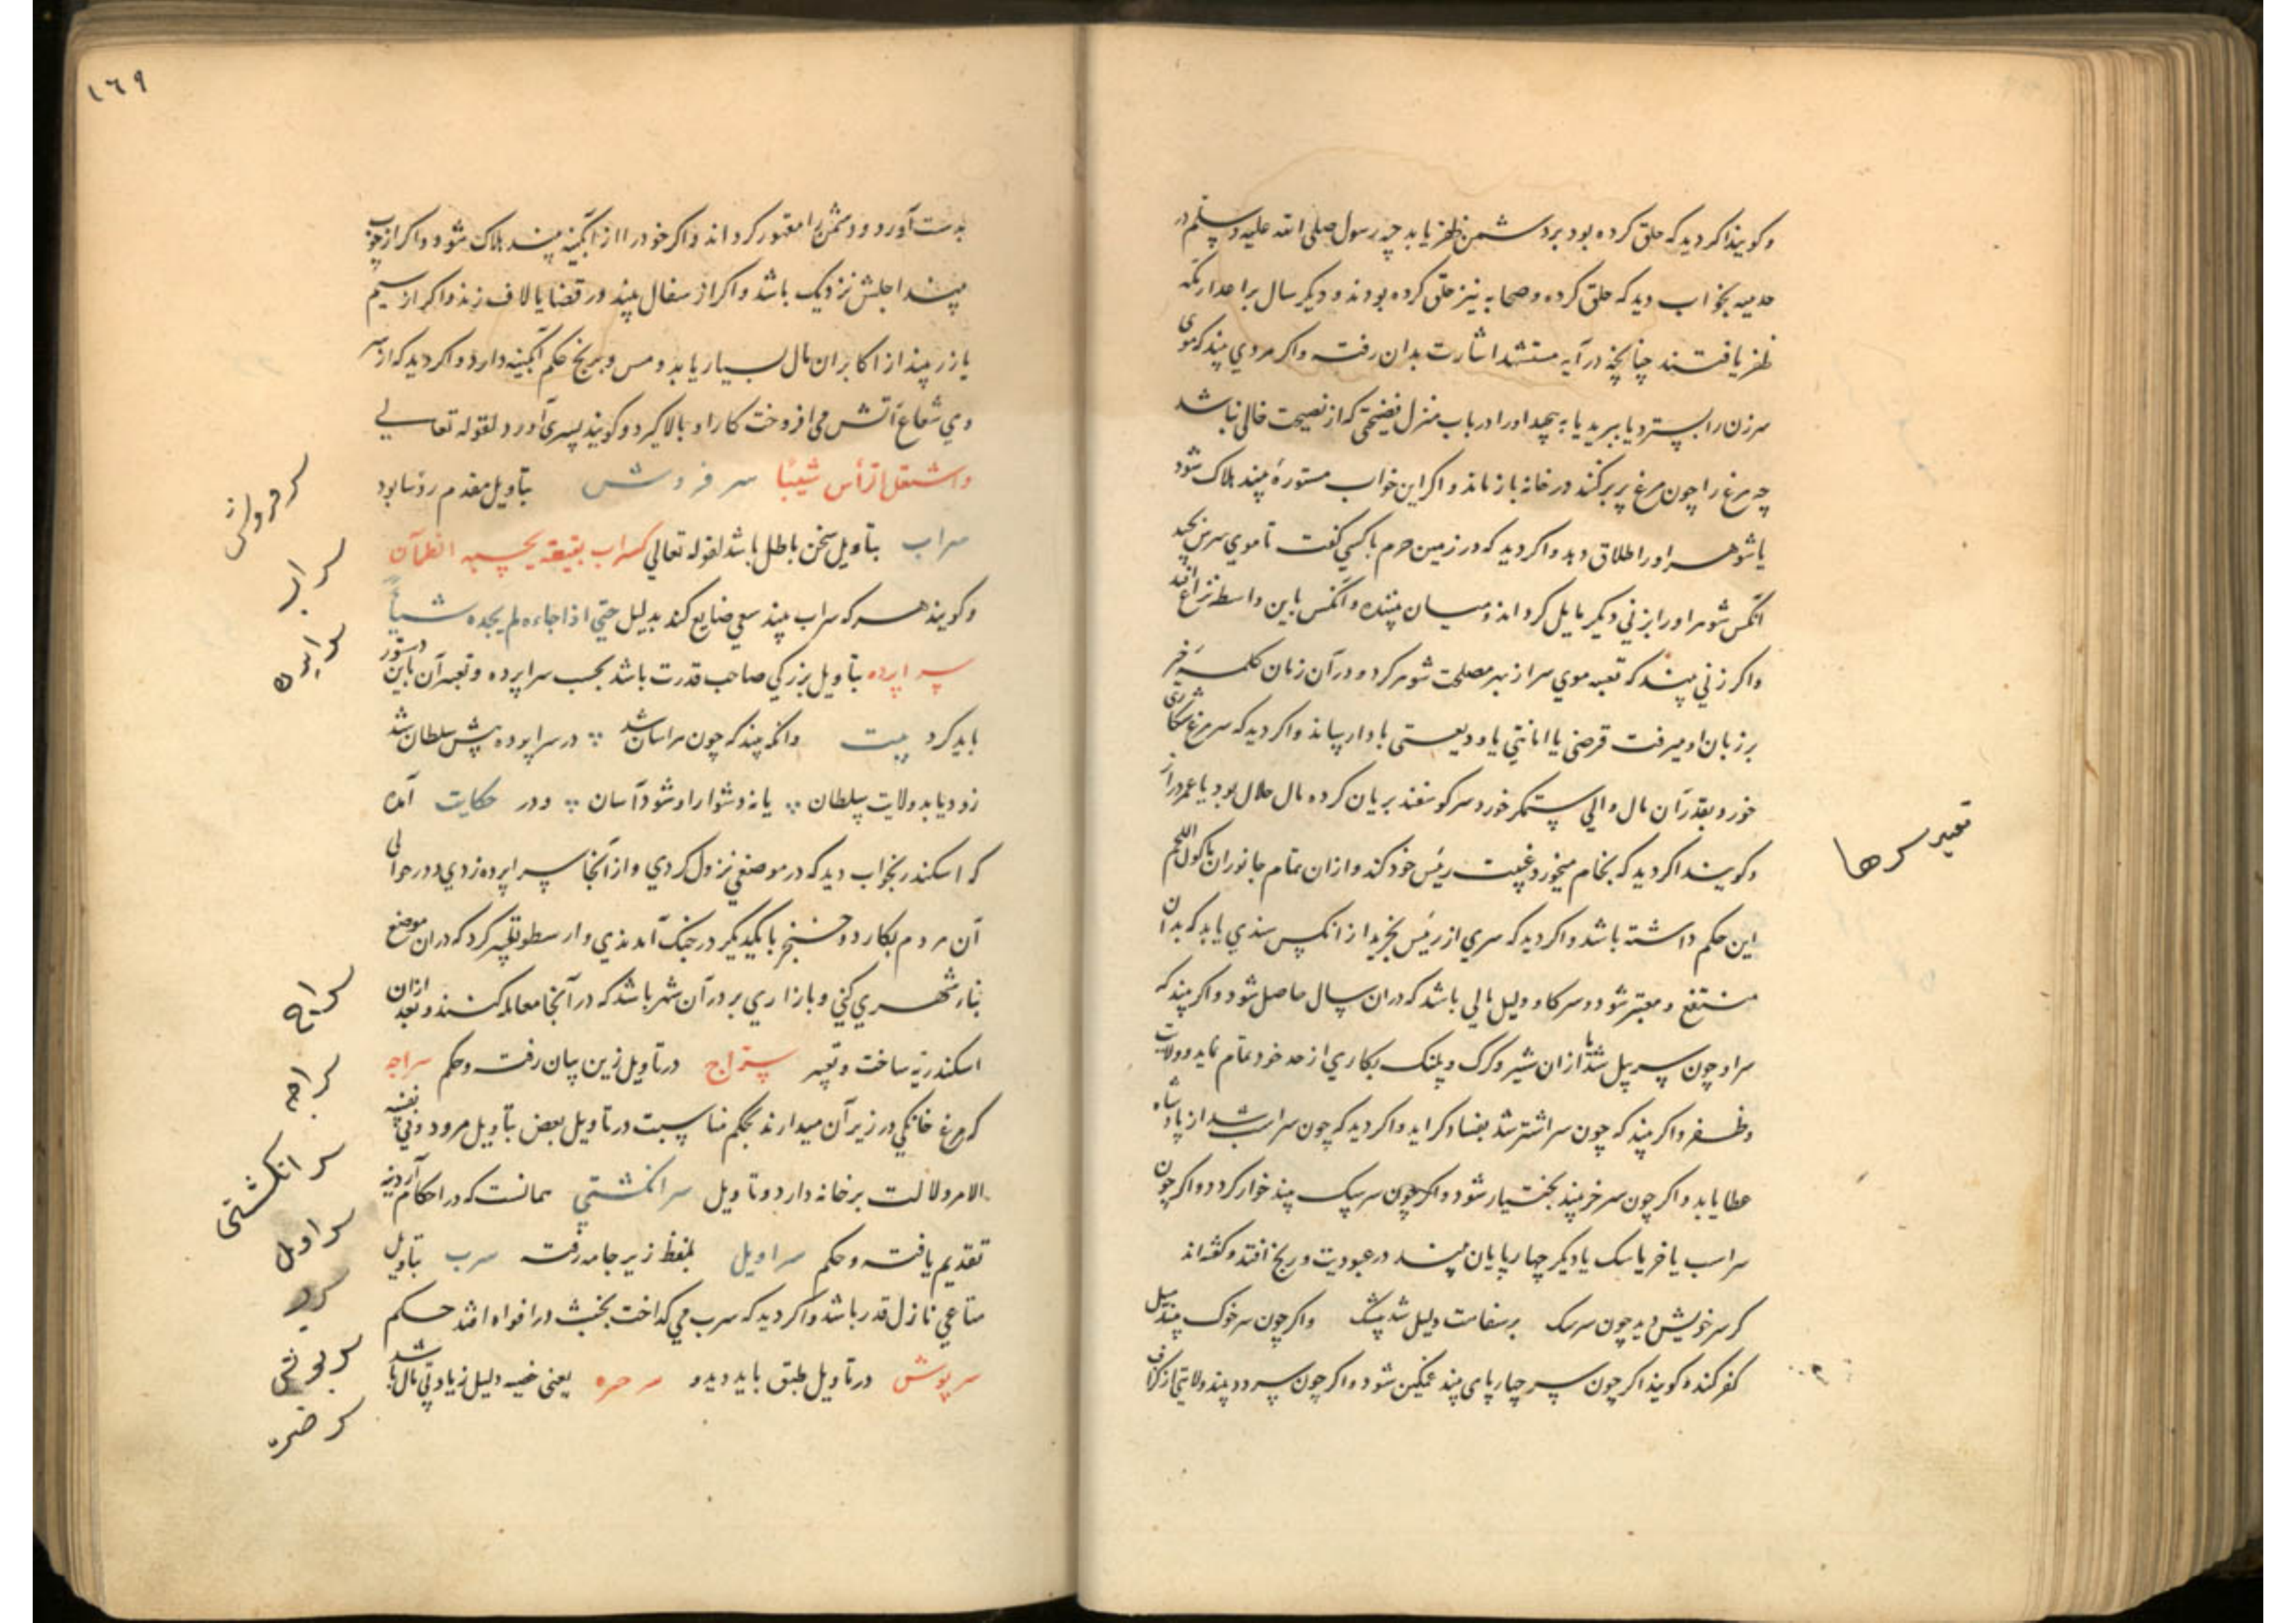 وکویند اکر دید که حلق کرده بود بر دشمن ظفر یابد چه رسول صلی الله علیه وسلم در
حدیبیه بخواب دید که حلق کرده و صحابه نیز حلق کرده بودند و دیکر سال بر اعدا در مکه
ظفر یافتند چنانچه در آیه اشارت بدان رفته واکر مردي بیند که موی
سر زن را بسترد یا ببرید یا به پیچد او را در باب منزل که از نصیحت خالی نباشد
چه مرغ را چون مرغ پر برکند در خانه باز ماند و اکر این خواب مستوره بیند هلاک شود
یا شوهر او را طلاق دهد و اکر دید که در زمین حرم با کسي کفت تا موي سرش بچید
آنکس شوهر او را بزني دیکر مایل کرداند و میان بیننده و آنکس باین واسطه نزاع افتد
واکر زني بیند که موي سر از بهر مصلحت شوهر کرد و در آن زمان کلمه خیر
بر زبان او میرفت قرضی یا امانتي یا ودیعتی باو دار رساند و اکر دید که سر مرغ شکاری
خورد بقدر آن مال والي ستمکر خورد سر کوسفند بریان کرده مال حلال بود یا عمر دراز
وکویند اکر دید که بخام میخورد غیبت رئیس خود کند و از ان تمام جانوران ماکول اللحم
این حکم داشته باشد و اکر دید که سري از رئیس بخرید از انکس سندي یابد که بدان
منتفع و معتبر شود و سر کاو دلیل مالي باشد که در ان سال حاصل شود و اکر بیند که
سر او چون سر پیل شد یا از ان شیر و کرک و پلنک بکاري از حد خود تمام نماید و ولایت
وظفر و اکر بیند که چون سر اشتر شد بفساد کراید و اکر دید که چون سر اسب شد از پادشاه
عطا یابد و اکر چون سر خر بیند بختیار شود و اکر چون سر سک بیند خوار کردد و اکر چون
سر اسب یا خر یا سک یا دیکر چهارپایان بیند در عبودیت و رنج افتد و کفته اند
کر سر خویش دید چون سر سک بر سفاهت دلیل شد بیشک واکر چون سر خوک بیند میل
کفر کند و کویند اکر چون سر چهارپای بیند غمکین شود و اکر چون سر دد بیند ولایتی از کزاف
تعبیر سرها
۱۶۹
بدست آورد و دشمن را مقهور کرداند و اکر خود را از آبکینه بیند هلاک شود و اکر از چوب
بیند اجلش نزدیک باشد و اکر از سفال بیند در قضایا لاف زند و اکر از سیم
یا زر بیند از اکابران مال بسیار یابد و مس و برنج حکم آبکینه دارد و اکر دید که از سر
وي شعاع آتش می افروخت کار او بالا کیرد و کویند پسری آورد لقوله تعالی
واشتعل الرأس شیبًا سر فروش بتأویل مقدم رؤسا بود
سراب بتأویل سخن باطل باشد لقوله تعالی کسراب بقیعة یحسبه الظمآن
وکویند هر که سراب بیند سعی ضایع کند بدلیل حتي اذا جاءه لم یجده شیأ
سراپرده بتأویل بزرکي صاحب قدرت باشد بحسب سراپرده و تعبیر آن باین دستور
باید کرد بیت وانکه بیند که چون هراسان شد در سراپرده پیش سلطان شد
زود یابد ولایت سلطان یا نه دشوار او شود آسان و در حکایت آمده
که اسکندر بخواب دید که در موضعي نزول کردي و از آنجا سراپرده زدي و در حوالی
آن مردم بکارد و خنجر با یکدیکر در جنک آمدندي و ارسطو تعبیر کرد که در ان موضع
بنا شهري کني و بازاري بر در آن شهر باشد که در آنجا معامله کنند و بعد از ان
اسکندریه ساخت و تعبیر سراج در تأویل زین بیان رفت و حکم سراجه
که مرغ خانکي در زیر آن میدارند بحکم مناسبت در تأویل بعض بتأویل مرود وفي نفسه
الامر دلالت بر خانه دارد و تاویل سر انکشتي همانست که در احکام آردینه
تقدیم یافت و حکم سراویل بلفظ زیر جامه رفت سرب بتأویل
متاعي نازل قدر باشد و اکر دید که سرب می کداخت بخبث در افواه افتد حکم
سرپوش در تأویل طبق باید دید و سرخره یعنی دلیل زیادتي مال باشد
سرفروش
سراب
سراپرده
سراج
سراجه
سر انکشتی
سراویل
سرب
سرپوش